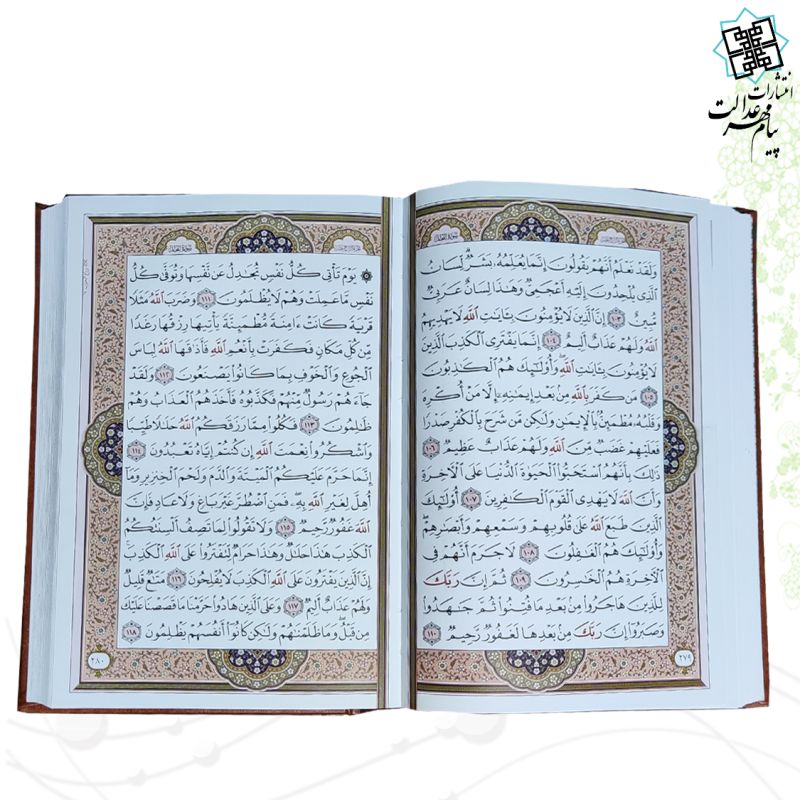 انتشارات
پیام مهر عدالت
سورة النحل
وَلَقَدْ نَعْلَمُ أَنَّهُمْ يَقُولُونَ إِنَّمَا يُعَلِّمُهُ بَشَرٌ لِّسَانُ
الَّذِي يُلْحِدُونَ إِلَيْهِ أَعْجَمِيٌّ وَهَٰذَا لِسَانٌ عَرَبِيٌّ
مُّبِينٌ ١٠٣ إِنَّ الَّذِينَ لَا يُؤْمِنُونَ بِآيَاتِ اللَّهِ لَا يَهْدِيهِمُ
اللَّهُ وَلَهُمْ عَذَابٌ أَلِيمٌ ١٠٤ إِنَّمَا يَفْتَرِي الْكَذِبَ الَّذِينَ
لَا يُؤْمِنُونَ بِآيَاتِ اللَّهِ وَأُولَٰئِكَ هُمُ الْكَاذِبُونَ
١٠٥ مَن كَفَرَ بِاللَّهِ مِن بَعْدِ إِيمَانِهِ إِلَّا مَنْ أُكْرِهَ
وَقَلْبُهُ مُطْمَئِنٌّ بِالْإِيمَانِ وَلَٰكِن مَّن شَرَحَ بِالْكُفْرِ صَدْرًا
فَعَلَيْهِمْ غَضَبٌ مِّنَ اللَّهِ وَلَهُمْ عَذَابٌ عَظِيمٌ ١٠٦
ذَٰلِكَ بِأَنَّهُمُ اسْتَحَبُّوا الْحَيَاةَ الدُّنْيَا عَلَى الْآخِرَةِ
وَأَنَّ اللَّهَ لَا يَهْدِي الْقَوْمَ الْكَافِرِينَ ١٠٧ أُولَٰئِكَ
الَّذِينَ طَبَعَ اللَّهُ عَلَىٰ قُلُوبِهِمْ وَسَمْعِهِمْ وَأَبْصَارِهِمْ
وَأُولَٰئِكَ هُمُ الْغَافِلُونَ ١٠٨ لَا جَرَمَ أَنَّهُمْ فِي
الْآخِرَةِ هُمُ الْخَاسِرُونَ ١٠٩ ثُمَّ إِنَّ رَبَّكَ
لِلَّذِينَ هَاجَرُوا مِن بَعْدِ مَا فُتِنُوا ثُمَّ جَاهَدُوا
وَصَبَرُوا إِنَّ رَبَّكَ مِن بَعْدِهَا لَغَفُورٌ رَّحِيمٌ ١١٠
٢٧٩
سورة النحل
يَوْمَ تَأْتِي كُلُّ نَفْسٍ تُجَادِلُ عَن نَّفْسِهَا وَتُوَفَّىٰ كُلُّ
نَفْسٍ مَّا عَمِلَتْ وَهُمْ لَا يُظْلَمُونَ ١١١ وَضَرَبَ اللَّهُ مَثَلًا
قَرْيَةً كَانَتْ آمِنَةً مُّطْمَئِنَّةً يَأْتِيهَا رِزْقُهَا رَغَدًا
مِّن كُلِّ مَكَانٍ فَكَفَرَتْ بِأَنْعُمِ اللَّهِ فَأَذَاقَهَا اللَّهُ لِبَاسَ
الْجُوعِ وَالْخَوْفِ بِمَا كَانُوا يَصْنَعُونَ ١١٢ وَلَقَدْ
جَاءَهُمْ رَسُولٌ مِّنْهُمْ فَكَذَّبُوهُ فَأَخَذَهُمُ الْعَذَابُ وَهُمْ
ظَالِمُونَ ١١٣ فَكُلُوا مِمَّا رَزَقَكُمُ اللَّهُ حَلَالًا طَيِّبًا
وَاشْكُرُوا نِعْمَتَ اللَّهِ إِن كُنتُمْ إِيَّاهُ تَعْبُدُونَ ١١٤
إِنَّمَا حَرَّمَ عَلَيْكُمُ الْمَيْتَةَ وَالدَّمَ وَلَحْمَ الْخِنزِيرِ وَمَا
أُهِلَّ لِغَيْرِ اللَّهِ بِهِ فَمَنِ اضْطُرَّ غَيْرَ بَاغٍ وَلَا عَادٍ فَإِنَّ
اللَّهَ غَفُورٌ رَّحِيمٌ ١١٥ وَلَا تَقُولُوا لِمَا تَصِفُ أَلْسِنَتُكُمُ
الْكَذِبَ هَٰذَا حَلَالٌ وَهَٰذَا حَرَامٌ لِّتَفْتَرُوا عَلَى اللَّهِ الْكَذِبَ
إِنَّ الَّذِينَ يَفْتَرُونَ عَلَى اللَّهِ الْكَذِبَ لَا يُفْلِحُونَ ١١٦ مَتَاعٌ قَلِيلٌ
وَلَهُمْ عَذَابٌ أَلِيمٌ ١١٧ وَعَلَى الَّذِينَ هَادُوا حَرَّمْنَا مَا قَصَصْنَا عَلَيْكَ
مِن قَبْلُ وَمَا ظَلَمْنَاهُمْ وَلَٰكِن كَانُوا أَنفُسَهُمْ يَظْلِمُونَ ١١٨
٢٨٠